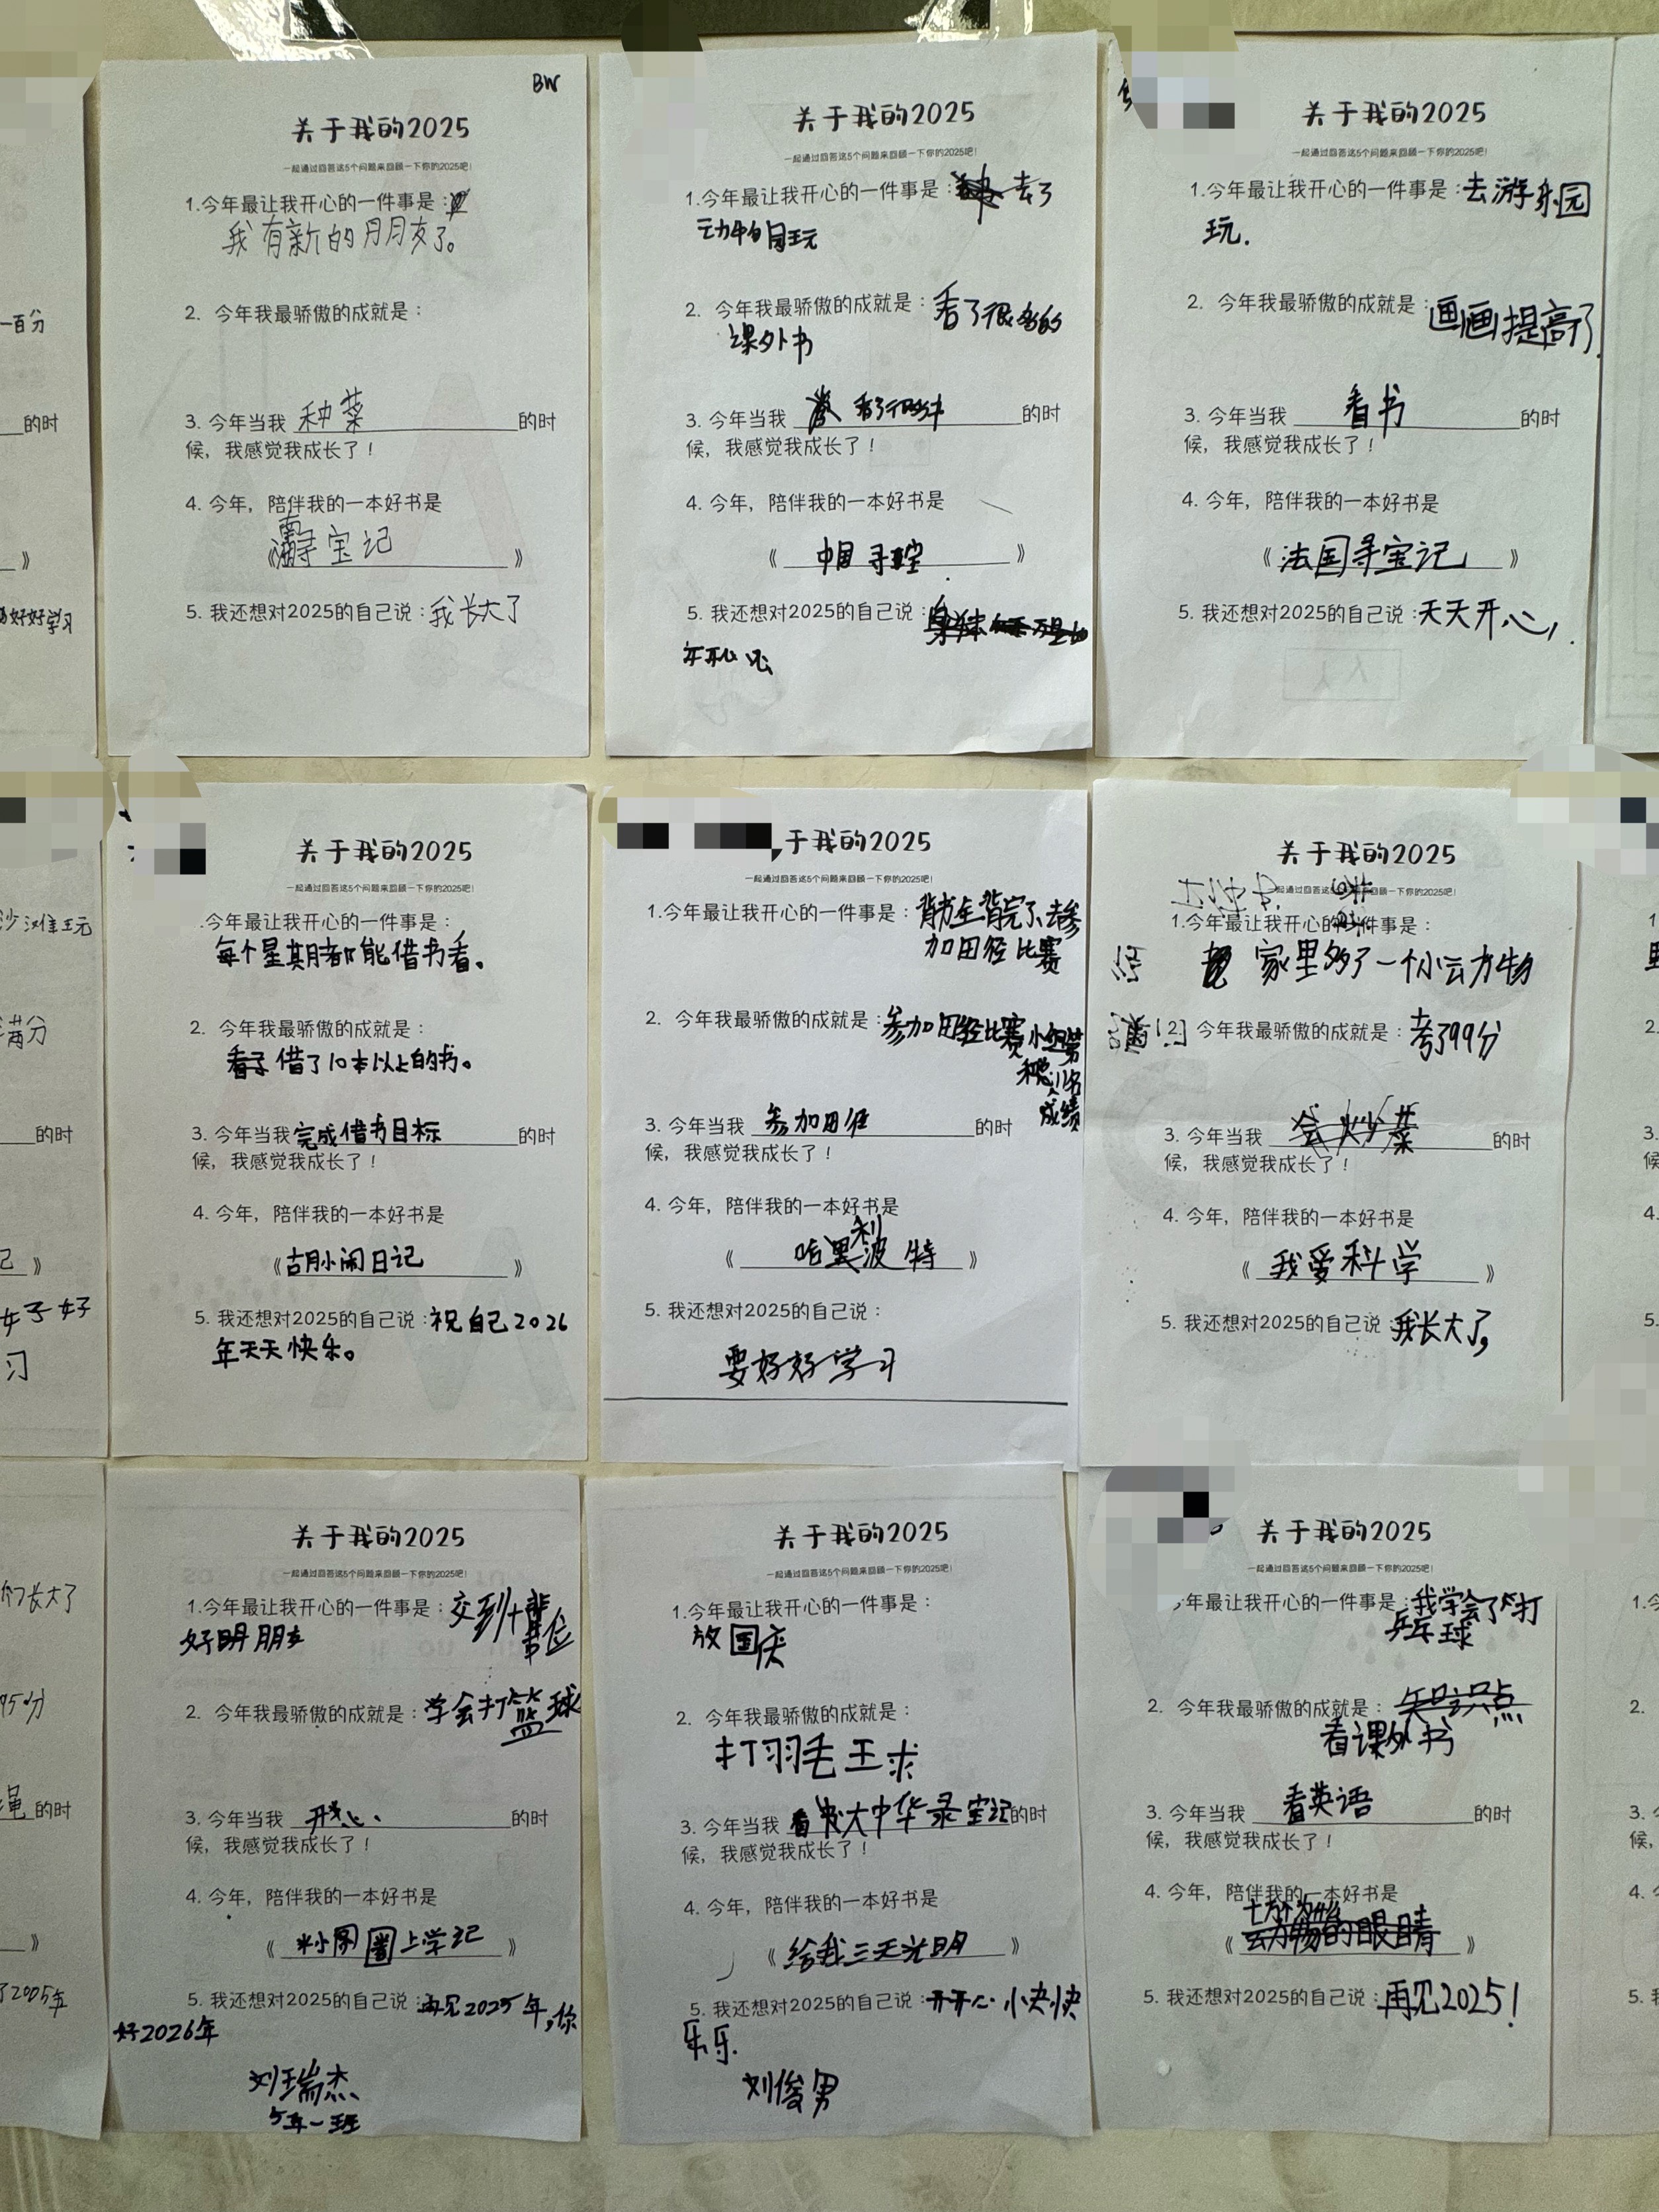 BW
关于我的2025
一起通过回答这5个问题来回顾一下你的2025吧！
1.今年最让我开心的一件事是：
我有新的朋友了。
2. 今年我最骄傲的成就是：
3. 今年当我 种菜 的时
候，我感觉我成长了！
4. 今年，陪伴我的一本好书是
《 寻宝记 》
5. 我还想对2025的自己说：我长大了
关于我的2025
一起通过回答这5个问题来回顾一下你的2025吧！
1.今年最让我开心的一件事是：去了
动物园玩
2. 今年我最骄傲的成就是：看了很多的
课外书
3. 今年当我 看了 的时
候，我感觉我成长了！
4. 今年，陪伴我的一本好书是
《 中国寻宝 》
5. 我还想对2025的自己说：身体
年开心
关于我的2025
一起通过回答这5个问题来回顾一下你的2025吧！
1.今年最让我开心的一件事是：去游乐园
玩.
2. 今年我最骄傲的成就是：画画提高了.
3. 今年当我 看书 的时
候，我感觉我成长了！
4. 今年，陪伴我的一本好书是
《 法国寻宝记 》
5. 我还想对2025的自己说：天天开心
一百分
的时
》
好好学习
关于我的2025
一起通过回答这5个问题来回顾一下你的2025吧！
.今年最让我开心的一件事是：
每个星期都能借书看。
2. 今年我最骄傲的成就是：
借了10本以上的书。
3. 今年当我 完成借书目标 的时
候，我感觉我成长了！
4. 今年，陪伴我的一本好书是
《 胡小闹日记 》
5. 我还想对2025的自己说：祝自己2026
年天天快乐。
于我的2025
一起通过回答这5个问题来回顾一下你的2025吧！
1.今年最让我开心的一件事是：背完了、去参
加田径比赛
2. 今年我最骄傲的成就是：参加田径比赛小组第
名
成绩
3. 今年当我 参加田径 的时
候，我感觉我成长了！
4. 今年，陪伴我的一本好书是
《 哈利波特 》
5. 我还想对2025的自己说：
要好好学习
关于我的2025
一起通过回答这5个问题来回顾一下你的2025吧！
1.今年最让我开心的一件事是：
家里多了一个小动物
2. 今年我最骄傲的成就是：考了99分
3. 今年当我 会炒菜 的时
候，我感觉我成长了！
4. 今年，陪伴我的一本好书是
《 我爱科学 》
5. 我还想对2025的自己说：我长大了,
满分
的时
记 》
好好
习
关于我的2025
一起通过回答这5个问题来回顾一下你的2025吧！
1.今年最让我开心的一件事是：交到十几位
好朋友
2. 今年我最骄傲的成就是：学会打篮球
3. 今年当我 开心 的时
候，我感觉我成长了！
4. 今年，陪伴我的一本好书是
《 米小圈上学记 》
5. 我还想对2025的自己说：再见2025年,你
好2026年
刘瑞杰
5年一班
关于我的2025
一起通过回答这5个问题来回顾一下你的2025吧！
1.今年最让我开心的一件事是：
放国庆
2. 今年我最骄傲的成就是：
打羽毛球
3. 今年当我 看 大中华 宝记的时
候，我感觉我成长了！
4. 今年，陪伴我的一本好书是
《 给我三天光明 》
5. 我还想对2025的自己说：开开心 快快
乐乐.
刘俊男
关于我的2025
一起通过回答这5个问题来回顾一下你的2025吧！
年最让我开心的一件事是：我学会了打
乒乓球
2. 今年我最骄傲的成就是：知识点
看课外书
3. 今年当我 看英语 的时
候，我感觉我成长了！
4. 今年，陪伴我的一本好书是
《 》
5. 我还想对2025的自己说：再见2025！
长大了
95分
绳 的时
》